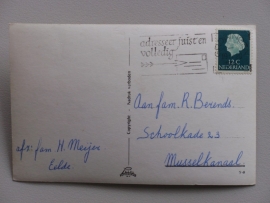 adresseer juist en
volledig
12 C
NEDERLAND
Aan fam. R. Berends
Schoolkade 23
Musselkanaal
afz: fam. H. Meijer
Eelde.
Copyright